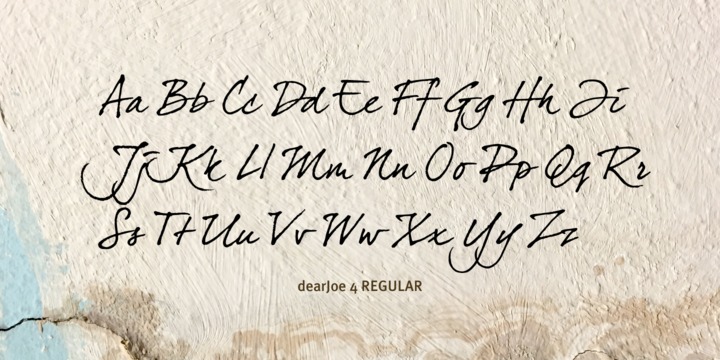 Aa Bb Cc Dd Ee Ff Gg Hh Ii
Jj Kk Ll Mm Nn Oo Pp Qq Rr
Ss Tt Uu Vv Ww Xx Yy Zz
dearJoe 4 REGULAR